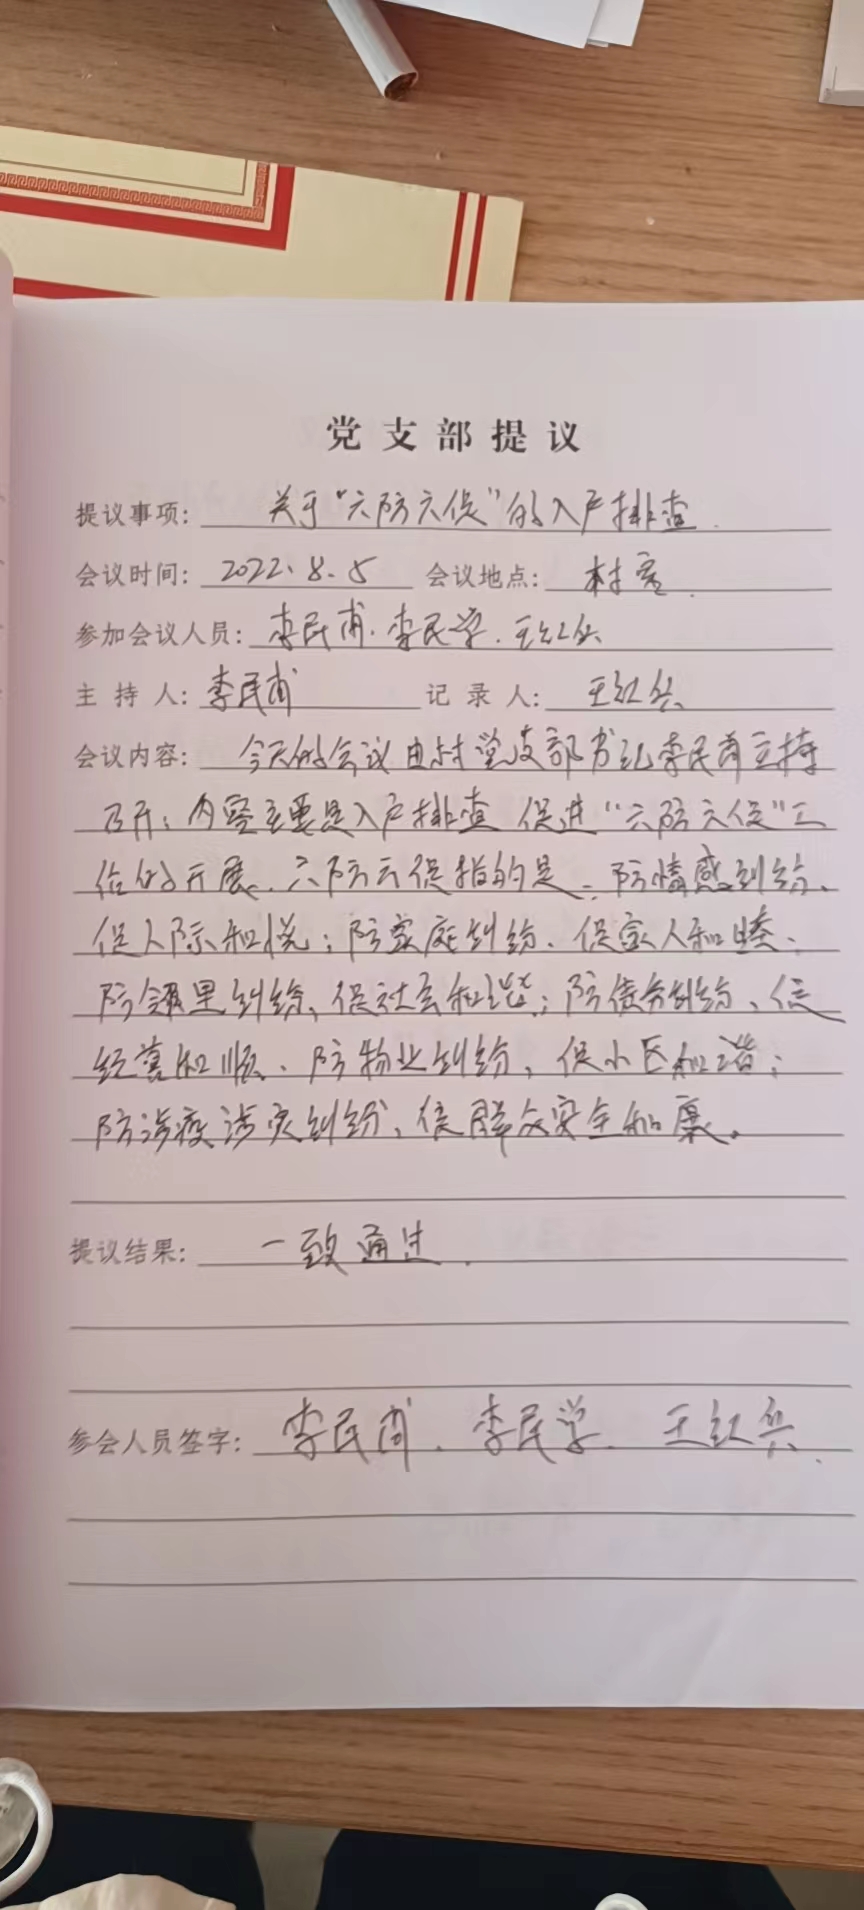 党支部提议
提议事项：关于“六防六促”的入户排查.
会议时间：2022.8.5 会议地点：村室.
参加会议人员：李民甫.李民学.王红兵
主持人：李民甫 记录人：王红兵
会议内容：今天的会议由村党支部书记李民甫主持
召开；内容主要是入户排查 促进“六防六促”工
作的开展、六防六促指的是：防情感纠纷、
促人际和悦；防家庭纠纷、促家人和睦、
防邻里纠纷、促社会和谐；防债务纠纷、促
经营和顺、防物业纠纷，促小区和谐；
防涉疫涉灾纠纷、促群众安全和康。
提议结果：一致通过.
参会人员签字：李民甫.李民学.王红兵.